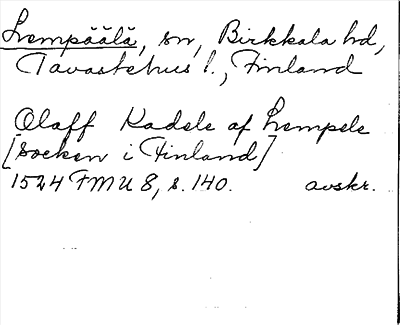 Lempäälä, sn, Birkkala hd,
Tavastehus l., Finland
Olaff Kadele af Lempele
[socken i Finland]
1524 FMU 8, s. 140. avskr.